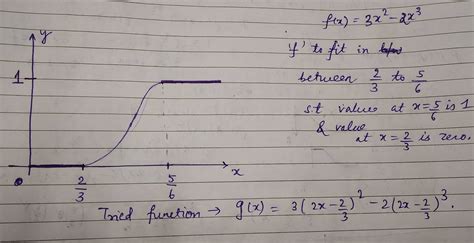 f(x) = 3x² - 2x³
'f' to fit in
between 2/3 to 5/6
s.t value at x = 5/6 is 1
& value
at x = 2/3 is zero.
y
1
0
2/3
5/6
x
Tried function → g(x) = 3(2x - 2/3)² - 2(2x - 2/3)³.